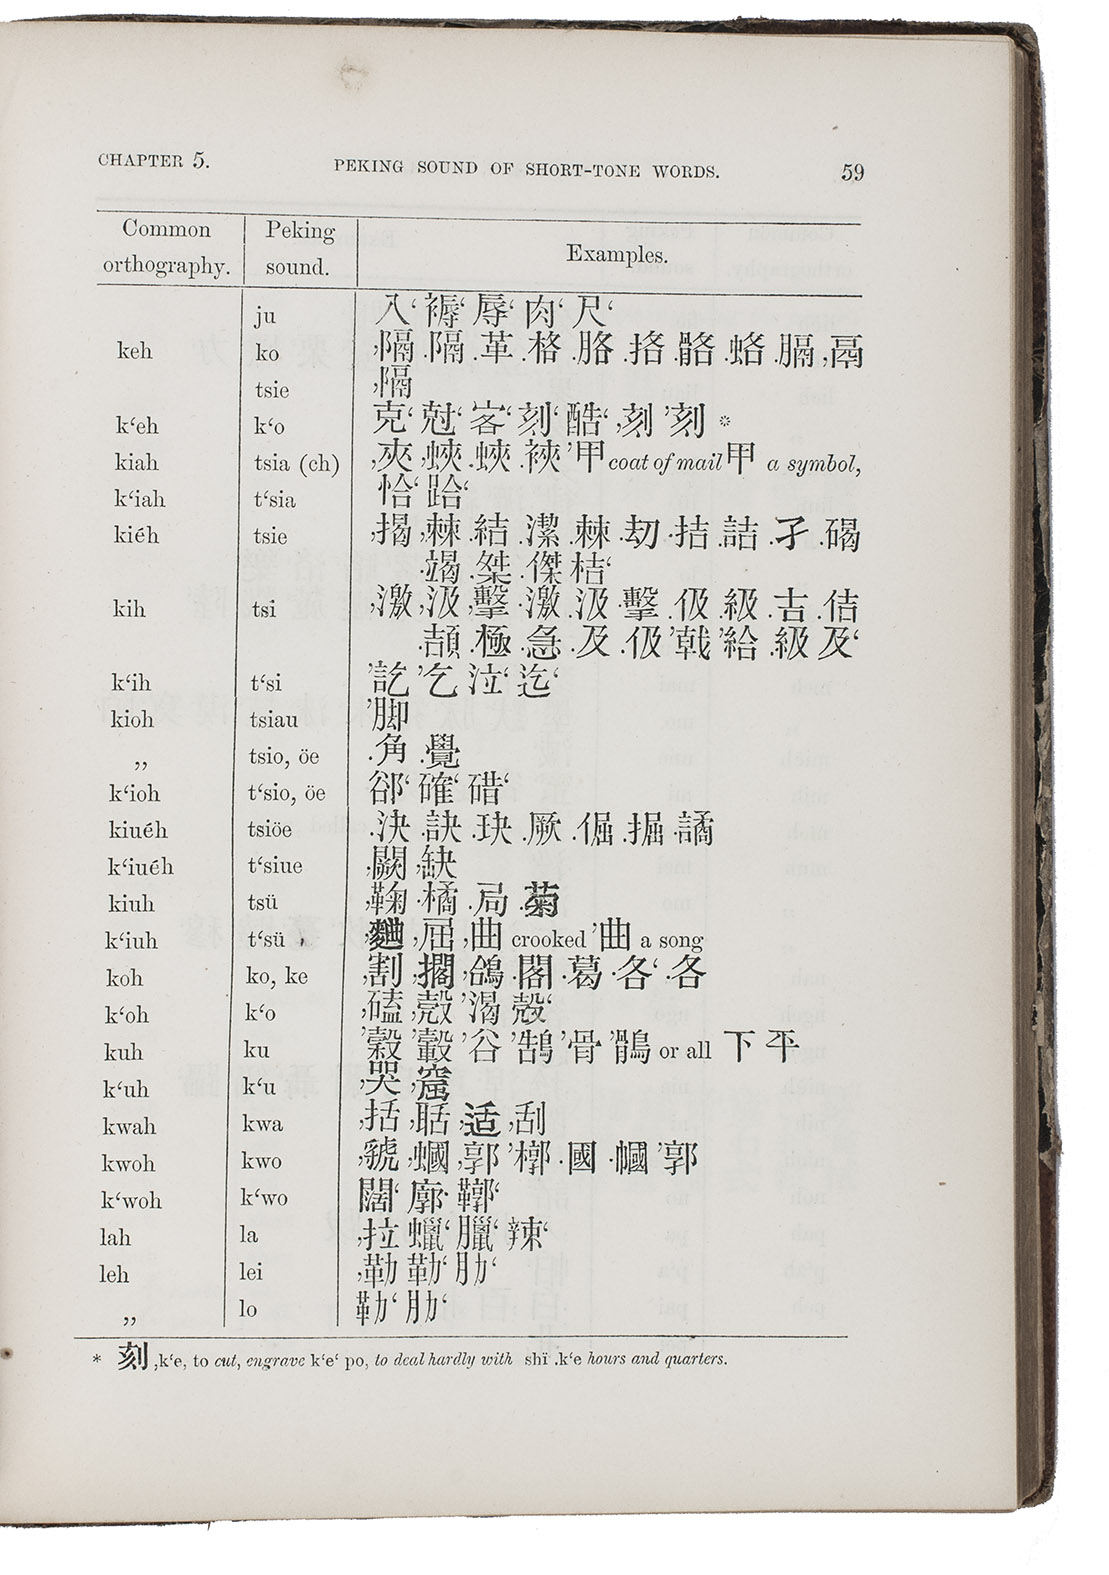 CHAPTER 5. PEKING SOUND OF SHORT-TONE WORDS. 59
Common orthography. Peking sound. Examples.
ju 入‘ 褥‘ 辱‘ 肉‘ 尺‘
keh ko ,隔 .隔 .革 .格 .胳 .挌 .骼 .蛤 .膈 ,鬲
tsie ,隔
k‘eh k‘o 克‘ 尅‘ 客‘ 刻‘ 酷‘ ,刻 ’刻 *
kiah tsia (ch) ,夾 ,蛺 .蛺 .裌 ’甲 coat of mail 甲 a symbol,
k‘iah t‘sia 恰‘ 跲‘
kiéh tsie ,揭 ,棘 .結 .潔 .棘 .刧 .拮 .詰 .孑 .碣
.竭 .桀 .傑 桔‘
kih tsi ,激 ,汲 ,擊 .激 .汲 .擊 .伋 .級 .吉 .佶
.頡 .極 .急 .及 .伋 ’戟 ’給 .級 及‘
k‘ih t‘si ’訖 ’乞 泣‘ 迄‘
kioh tsiau ’脚
„ tsio, öe .角 .覺
k‘ioh t‘sio, öe 郤‘ 確‘ 碏‘
kiuéh tsiöe .決 .訣 .玦 .厥 .倔 .掘 .譎
k‘iuéh t‘siue ,闕 ,缺
kiuh tsü ,鞠 .橘 .局 .菊
k‘iuh t‘sü ,麯 ,屈 ,曲 crooked ’曲 a song
koh ko, ke ,割 ,擱 ,鴿 .閣 .葛 .各‘ .各
k‘oh k‘o ,磕 ,殼 ’渴 殼‘
kuh ku ’穀 ’轂 ’谷 ’鵠 ’骨 ’鶻 or all 下 平
k‘uh k‘u ,哭 ,窟
kwah kwa ,括 ,聒 ,适 ,刮
kwoh kwo ,虢 ,蟈 ,郭 ’槨 .國 .幗 ’郭
k‘woh k‘wo 闊‘ 廓‘ 鞹‘
lah la ,拉 蠟‘ 臘‘ 辣‘
leh lei ,勒 勒‘ 肋‘
„ lo 勒‘ 肋‘
* 刻 ,k‘e, to cut, engrave k‘e‘ po, to deal hardly with shï .k‘e hours and quarters.